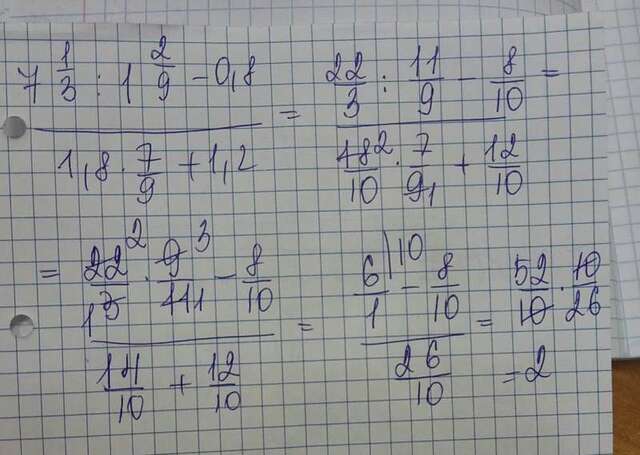 7 1/3 : 1 2/9 - 0,8 / 1,8 · 7/9 + 1,2 = 22/3 : 11/9 - 8/10 / 18²/10 · 7/9₁ + 12/10 =
= 22²/₁3 · 9³/11₁ - 8/10 / 14/10 + 12/10 = 6|10/1 - 8/10 / 26/10 = 52/10 · 10/26
= 2